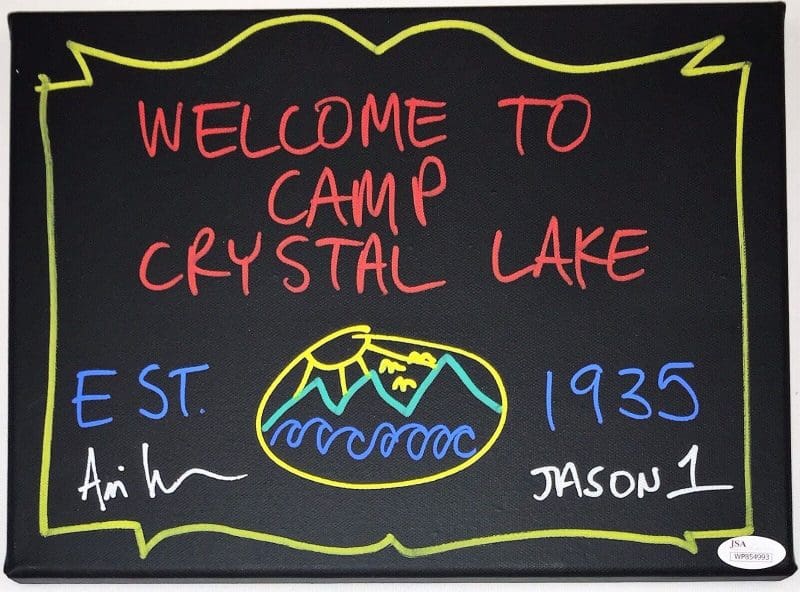 WELCOME TO
CAMP
CRYSTAL LAKE
EST.
1935
Ari
JASON 1
JSA
WP854993